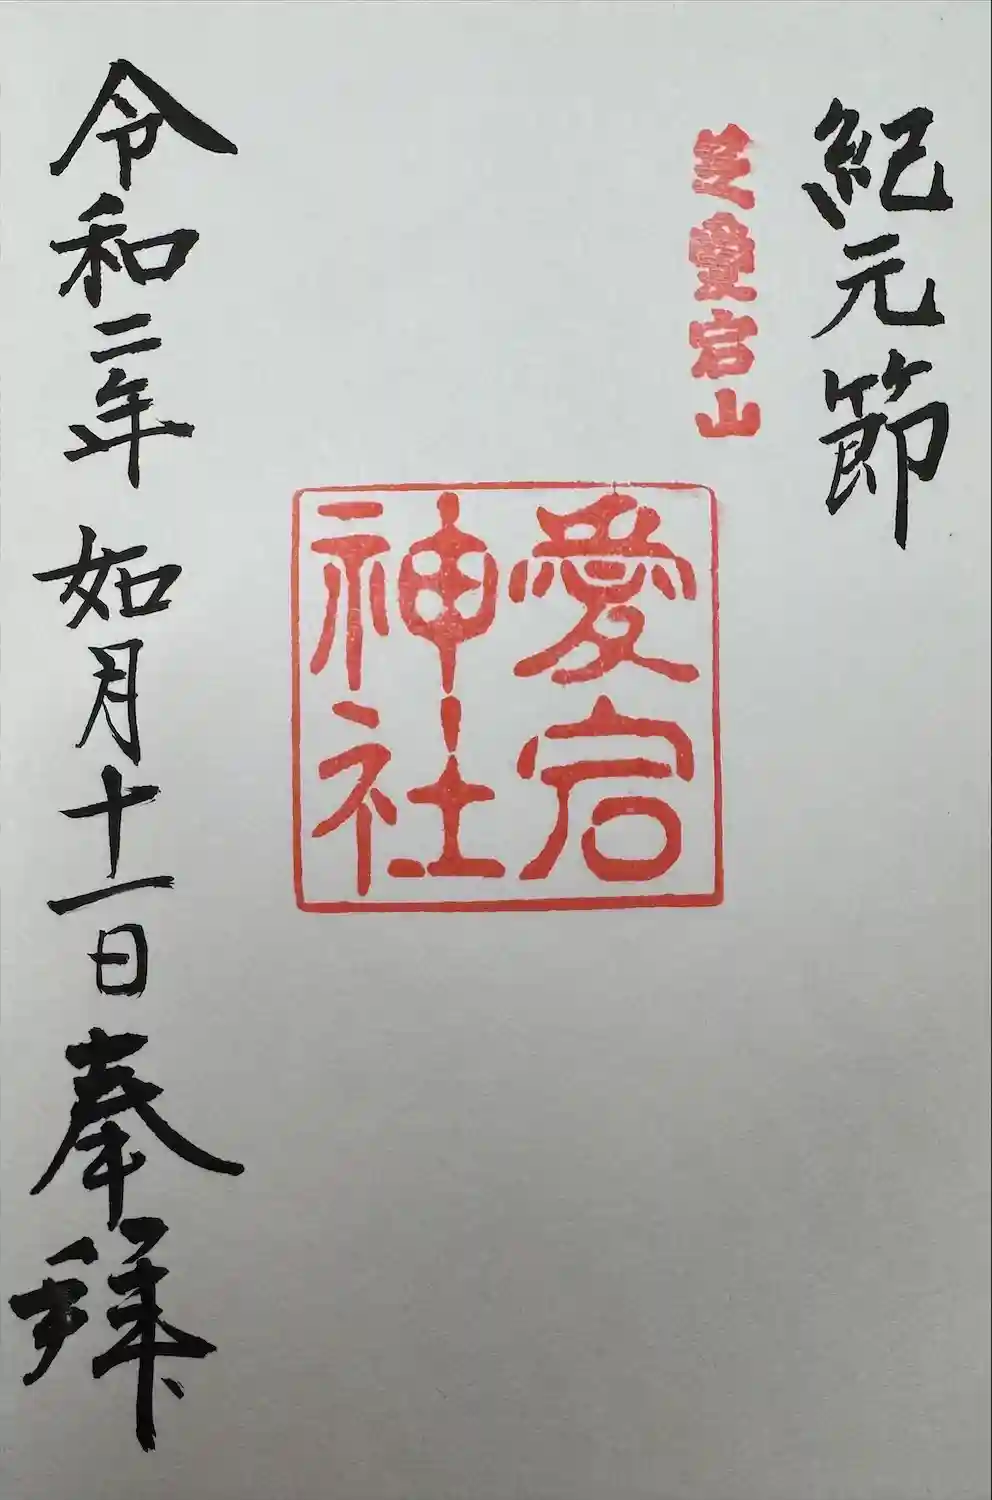 紀元節
芝愛宕山
愛宕
神社
令和二年 如月十一日奉拝